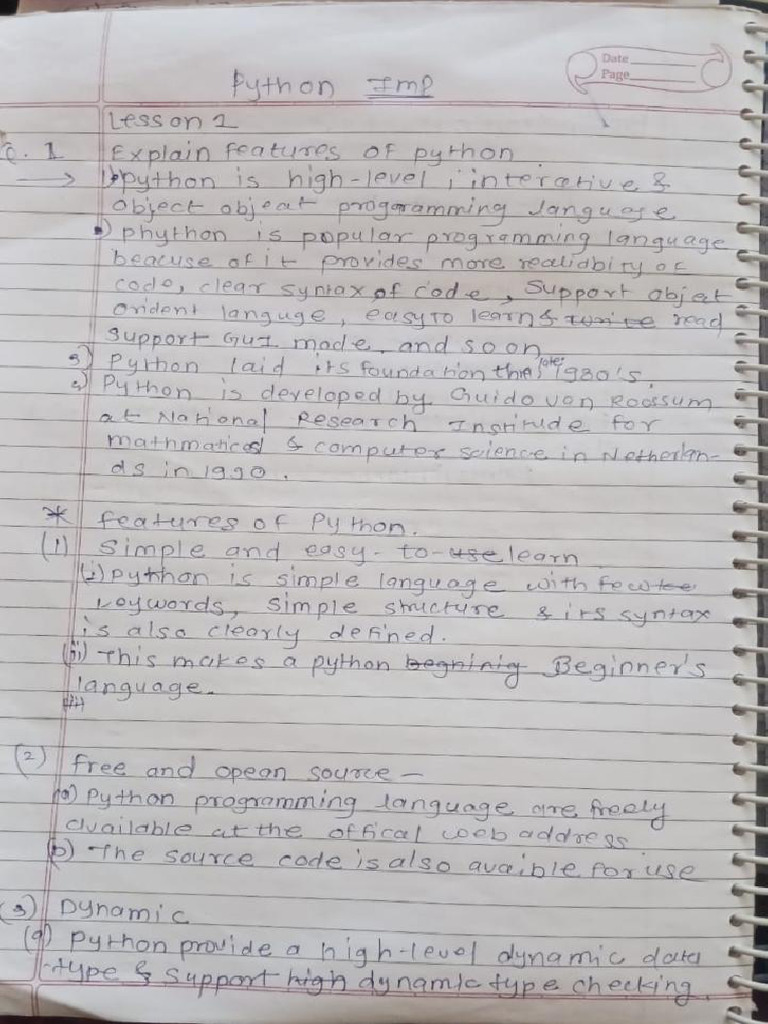 Date
Page
Python Imp
Lesson 1
Q. 1 Explain features of python
→ 1) python is high-level, interative &
object objeat programming language
2) phython is popular programming language
beacuse of it provides more realidbity of
code, clear syntax of code, Support object
orident languge, easy to learn & write read
Support GUI made and so on
3) Python laid its foundation the late 1980's.
4) Python is developed by Guido van Roossum
at National Research Instirude for
mathmatics & computer science in Netherlan-
ds in 1990.
* features of Python.
(1) Simple and easy-to-use learn
(i) python is simple language with few
keywords, simple structure & its syntax
is also clearly defined.
(ii) This makes a python begninig Beginner's
language.
(2) free and opean source -
(a) Python programming language are freely
available at the offical web address
(b) The source code is also avaible for use
(3) Dynamic
(a) Python provide a high-level dynamic data
type & support high dynamic type checking.